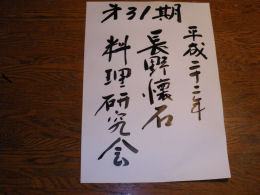 第31期
平成二十二年
長野懐石
料理研究会